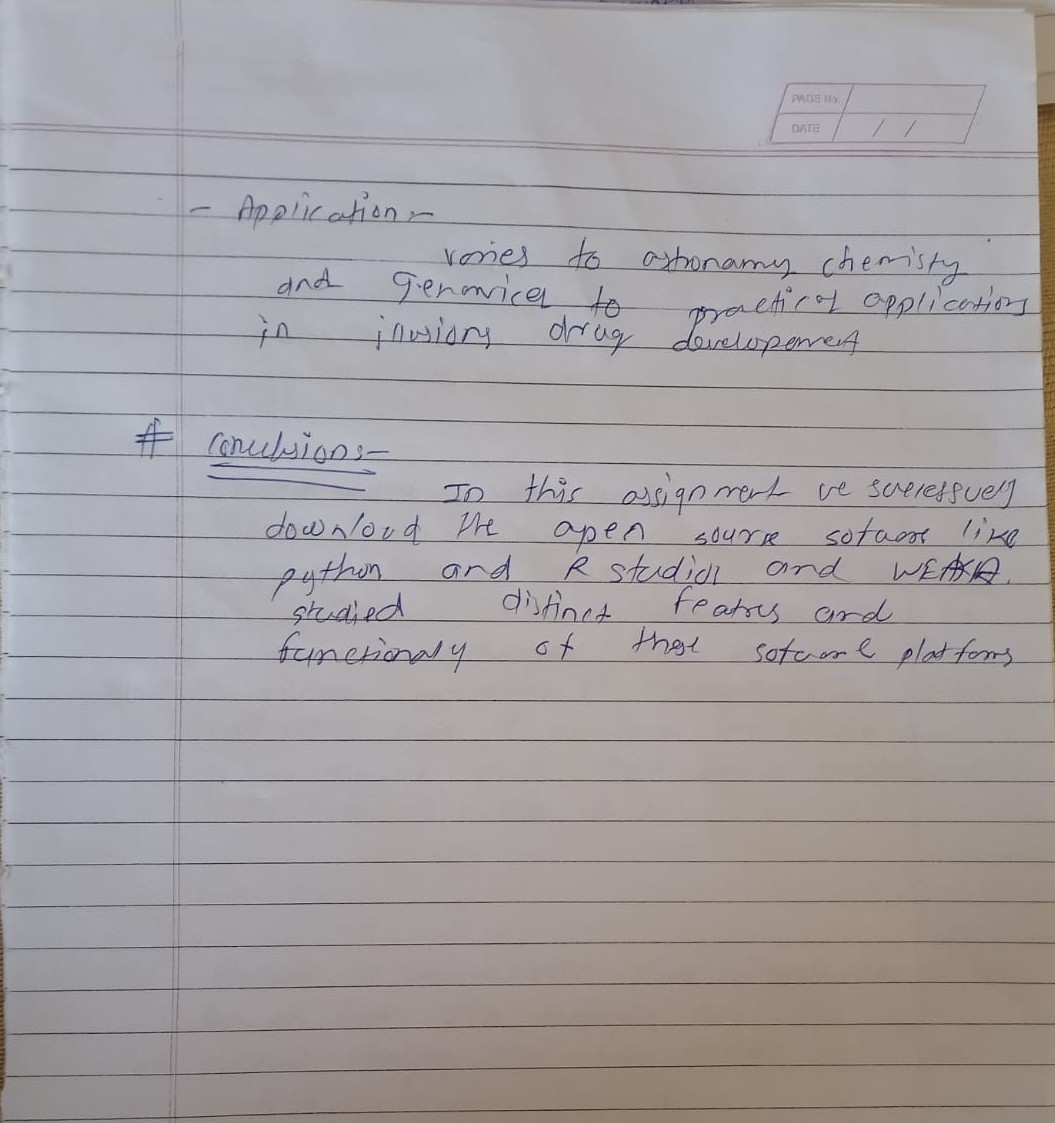 PAGE No.
DATE / /
- Application :-
varies to astronamy chemisty
and Genomics to practical applications
in drug developement
# Conclusions-
In this assignment we
download the open sourse like
python and R studios and WEKA.
studied distinct featrus and
functionaly of these platforms